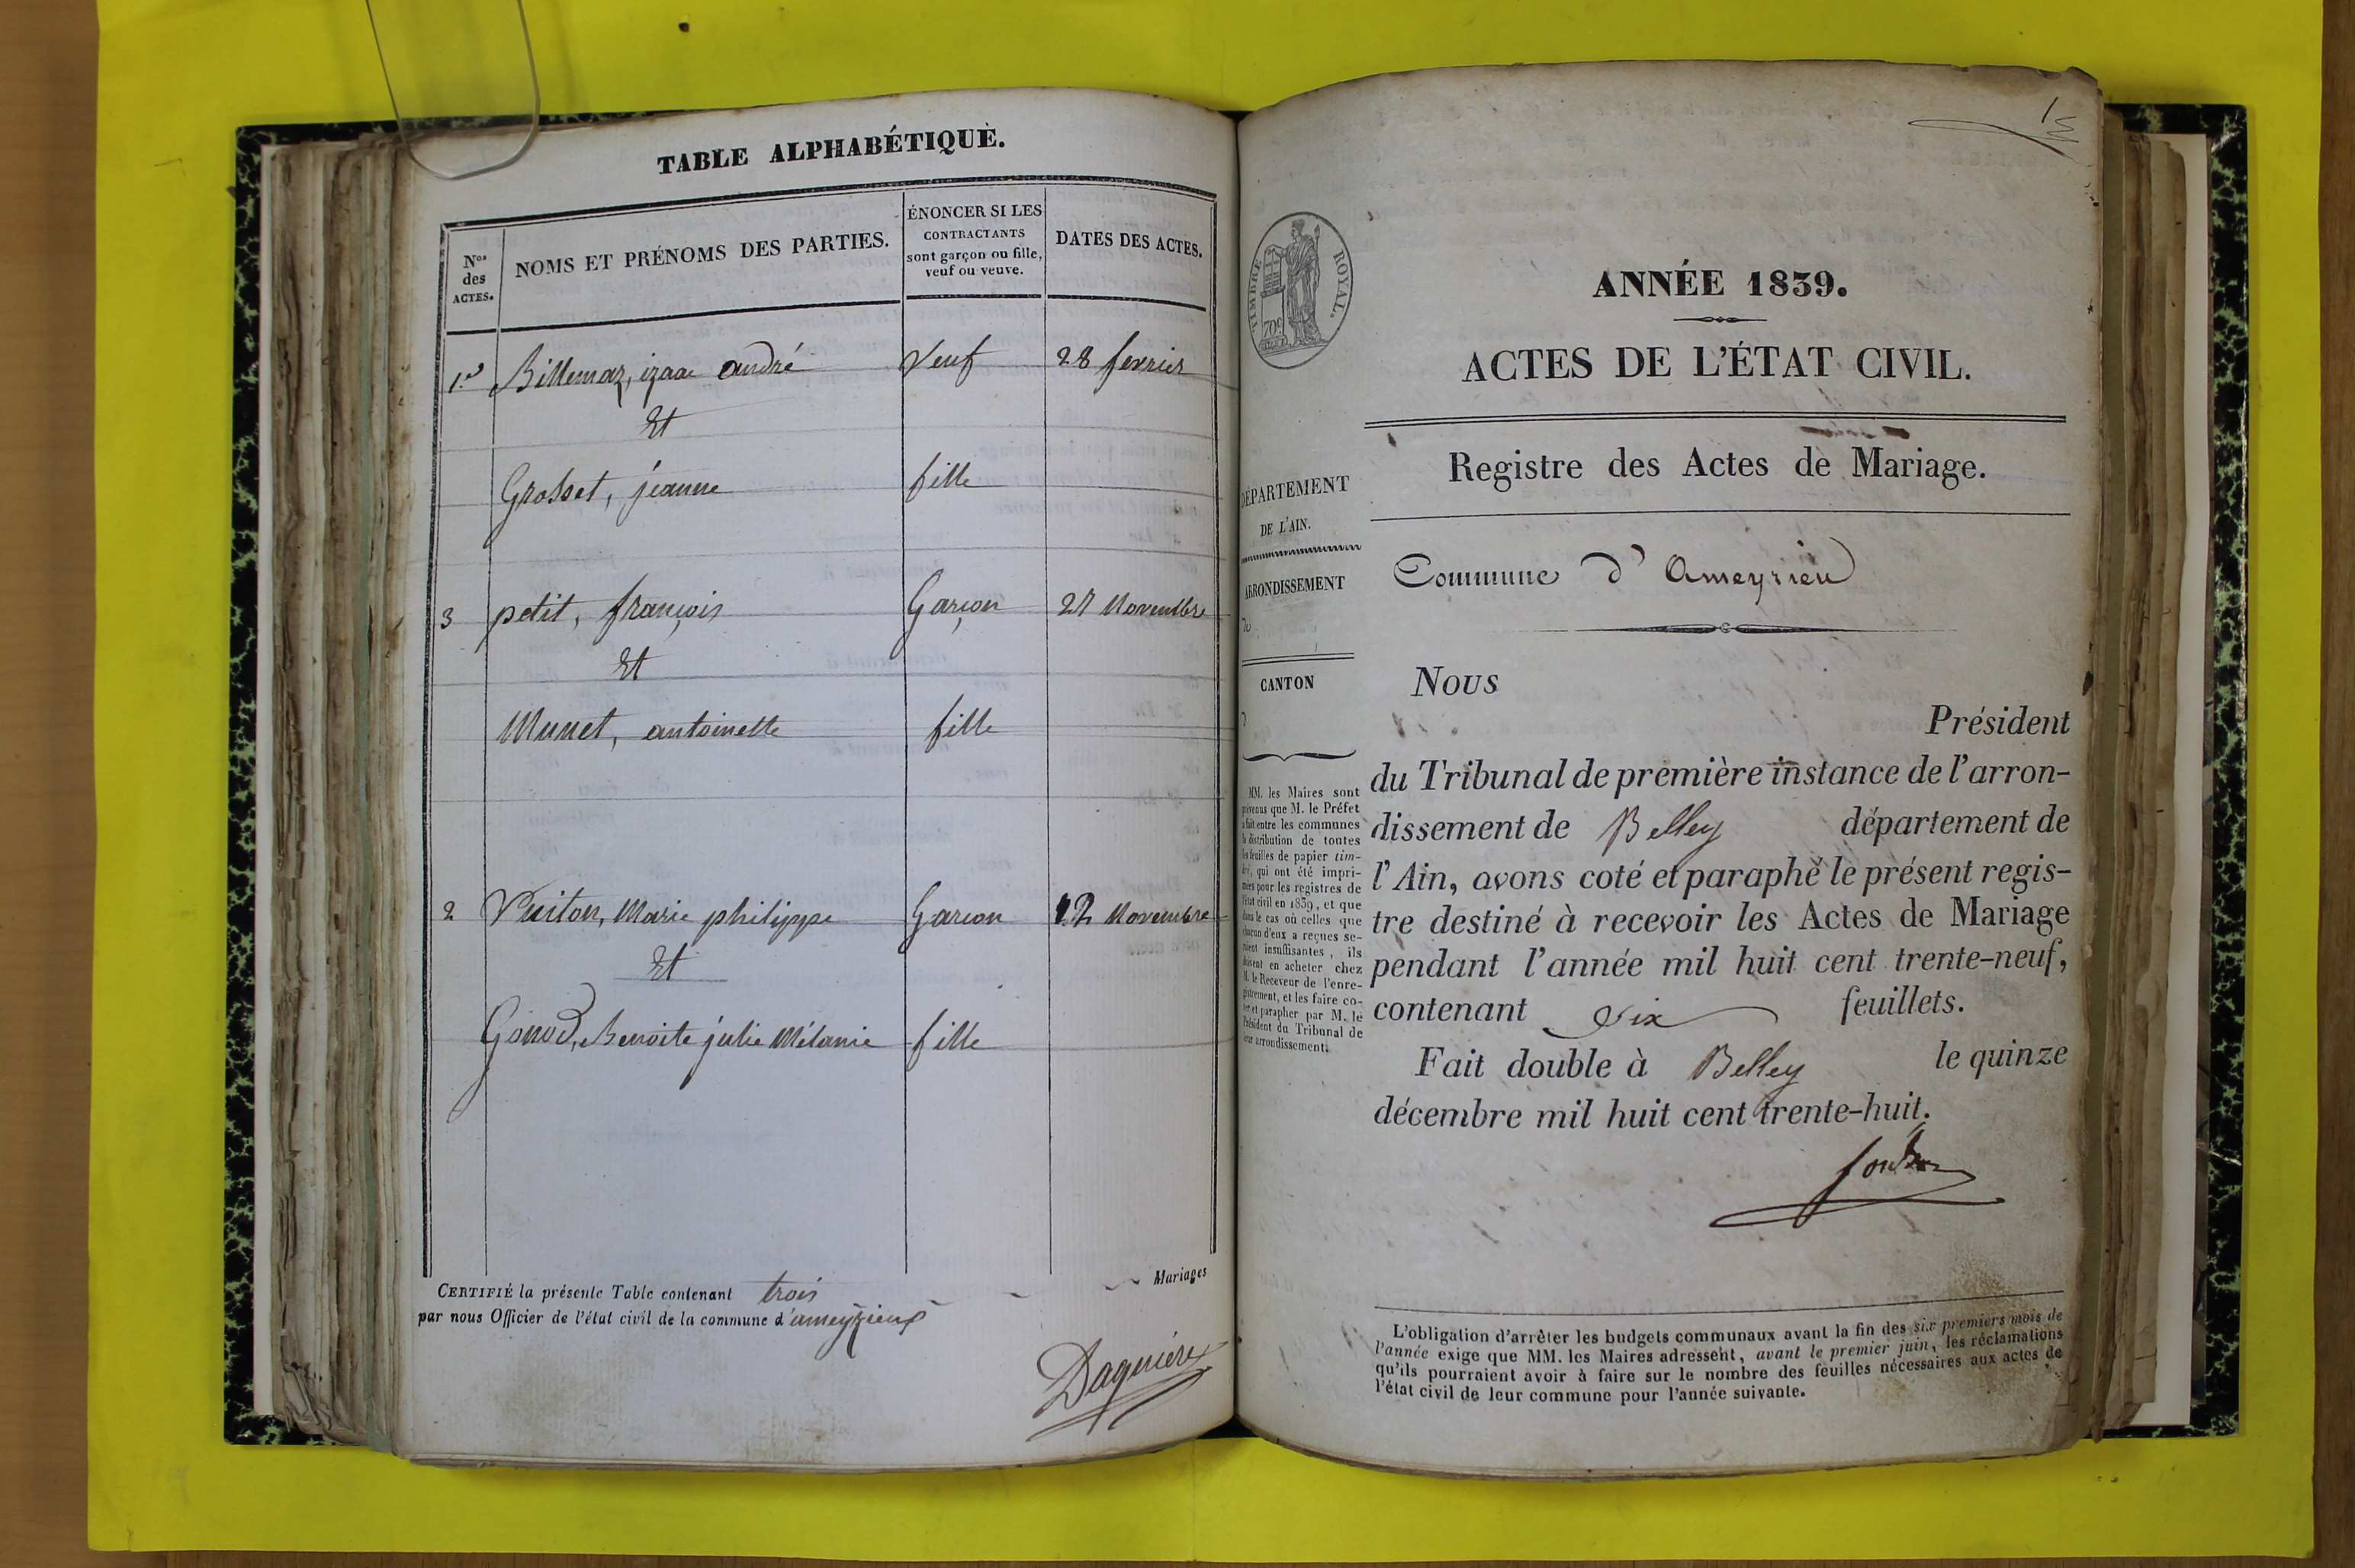 TABLE ALPHABÉTIQUE.
Nos des ACTES.
NOMS ET PRÉNOMS DES PARTIES.
ÉNONCER SI LES
CONTRACTANTS
sont garçon ou fille,
veuf ou veuve.
DATES DES ACTES.
1er Billemaz, izaac andré Veuf 28 fevrier
Et
Grosset, jeanne fille
3 petit, françois Garçon 27 Novembre
Et
Munet, antoinette fille
2 Vuiton, Marie philippe Garcon 12 Novembre
Et
Gonod, Benoite julie Mélanie fille
CERTIFIÉ la présente Table contenant trois Mariages
par nous Officier de l'état civil de la commune d'ameyzieux
Daguiere
1
TIMBRE ROYAL.
70c
ANNÉE 1839.
ACTES DE L'ÉTAT CIVIL.
Registre des Actes de Mariage.
Commune d'Ameyzieu
DÉPARTEMENT
DE L'AIN.
ARRONDISSEMENT
de
CANTON
MM. les Maires sont
prévenus que M. le Préfet
a fait entre les communes
la distribution de toutes
les feuilles de papier tim-
bré, qui ont été impri-
mées pour les registres de
l'état civil en 1839, et que
dans le cas où celles que
chacun d'eux a reçues se-
raient insuffisantes, ils
doivent en acheter chez
M. le Receveur de l'enre-
gistrement, et les faire co-
ter et parapher par M. le
Président du Tribunal de
leur arrondissement.
Nous
Président
du Tribunal de première instance de l'arron-
dissement de Belley département de
l'Ain, avons coté et paraphé le présent regis-
tre destiné à recevoir les Actes de Mariage
pendant l'année mil huit cent trente-neuf,
contenant Six feuillets.
Fait double à Belley le quinze
décembre mil huit cent trente-huit.
L'obligation d'arrêter les budgets communaux avant la fin des six premiers mois de
l'année exige que MM. les Maires adressent, avant le premier juin, les réclamations
qu'ils pourraient avoir à faire sur le nombre des feuilles nécessaires aux actes de
l'état civil de leur commune pour l'année suivante.